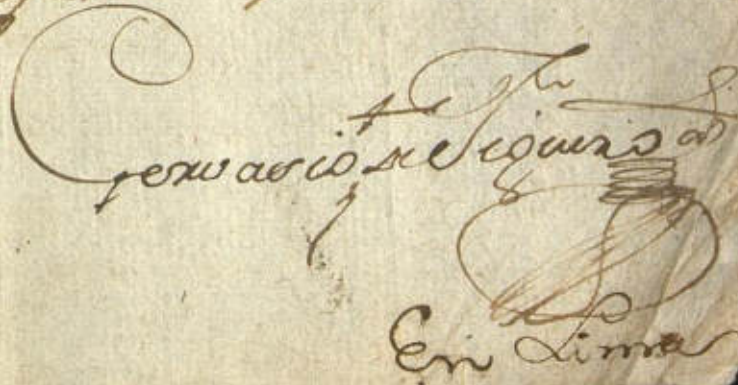 Gervasio de Figueroa
En Lima